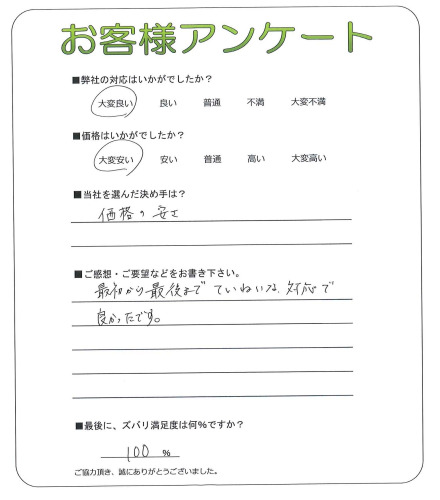 お客様アンケート
■弊社の対応はいかがでしたか？
大変良い 良い 普通 不満 大変不満
■価格はいかがでしたか？
大変安い 安い 普通 高い 大変高い
■当社を選んだ決め手は？
価格の安さ
■ご感想・ご要望などをお書き下さい。
最初から最後までていねいな対応で
良かったです。
■最後に、ズバリ満足度は何％ですか？
100 ％
ご協力頂き、誠にありがとうございました。